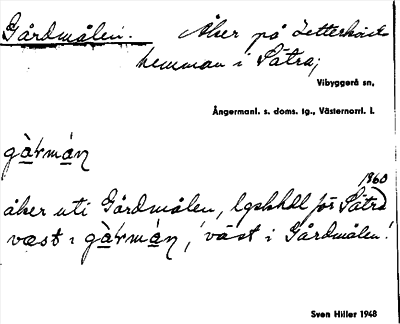 Gårdmålen. Åker på Zetterkvist
hemman i Sätra;
Vibyggerå sn,
Ångermanl. s. doms. tg., Västernorrl. l.
gàrmán
1860
åker uti Gårdmålen, lgskhdl för Sätra
væst i gàrmán, 'väst i Gårdmålen'.
Sven Hiller 1948